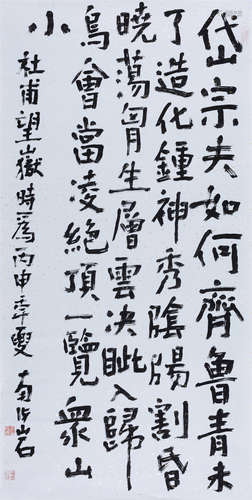 岱宗夫如何齊魯青未
了造化鍾神秀陰陽割昏
曉蕩胷生層雲決眦入歸
鳥會當凌絕頂一覽眾山
小
杜甫望嶽時為丙申年